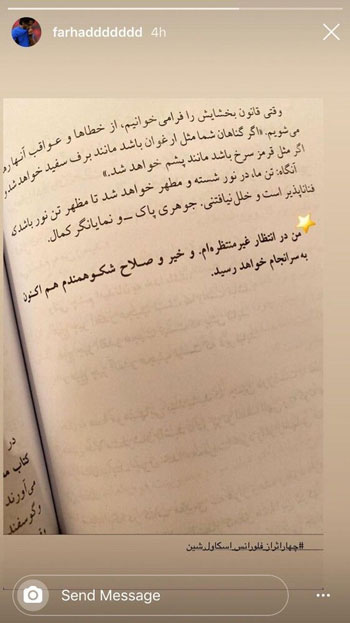 farhaddddddd 4h
وقتی قانون بخشایش را فرامی‌خوانیم، از خطاها و عواقب آنها
می‌شویم. «اگر گناهان شما مثل ارغوان باشد مانند برف سفید خواهد شد
اگر مثل قرمز سرخ باشد مانند پشم خواهد شد.»
آنگاه: تن ما، در نور شسته و مطهر خواهد شد تا مظهر تن نور باشد
فناناپذیر است و خلل‌نیافتنی. جوهری پاک ــ و نمایانگر کمال.
من در انتظار غیرمنتظره‌ام. و خیر و صلاح شکوهمندم هم اکنون
به سرانجام خواهد رسید.
در
کتاب
می‌آورند
و گوسفند
#چهاراثراز_فلورانس_اسکاول_شین
Send Message